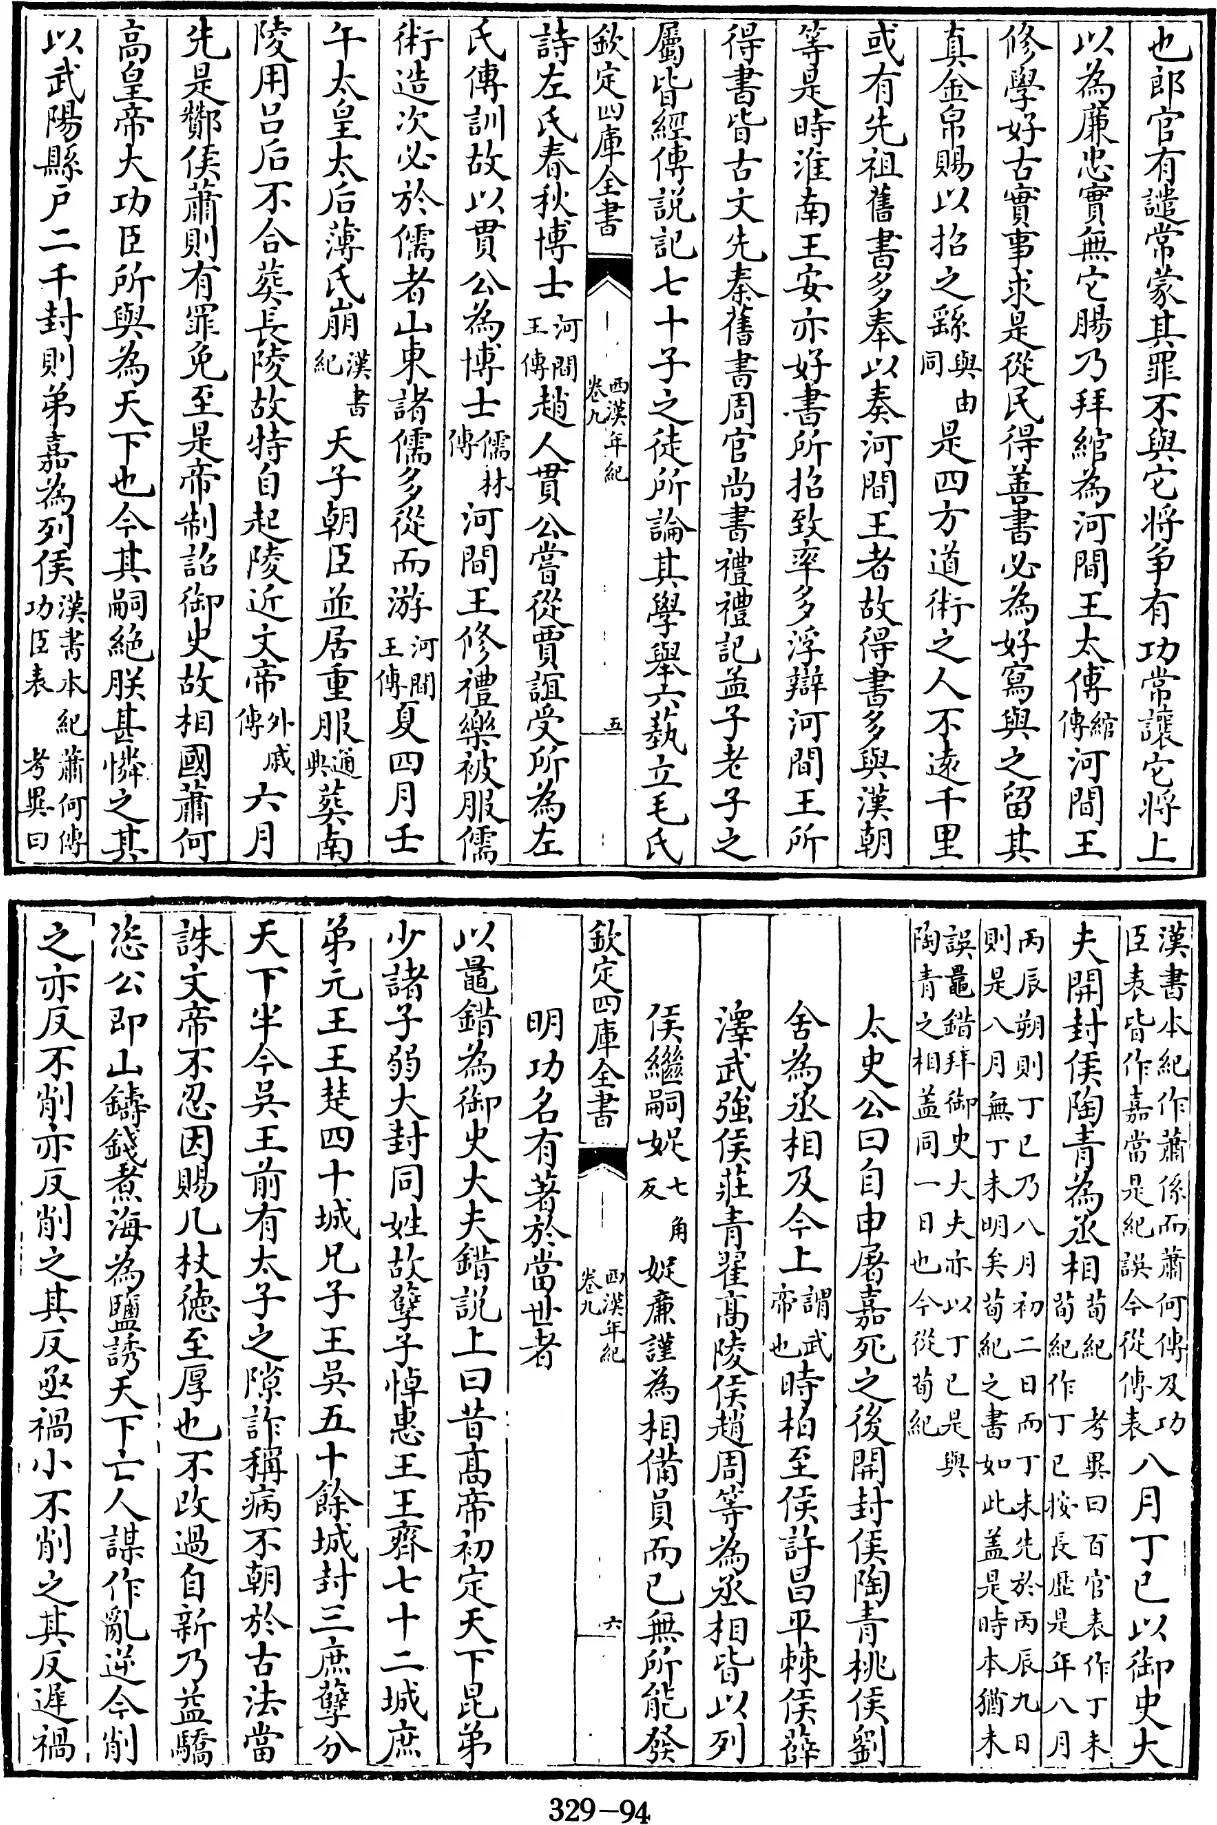 也郎官有譴常蒙其罪不與它將爭有功常讓它將上
以為廉忠實無它腸乃拜綰為河間王太傅綰傳河間王
修學好古實事求是從民得善書必為好寫與之留其
真金帛賜以招之繇與由同是四方道術之人不遠千里
或有先祖舊書多奉以奏河間王者故得書多與漢朝
等是時淮南王安亦好書所招致率多浮辯河間王所
得書皆古文先秦舊書周官尚書禮禮記孟子老子之
屬皆經傳說記七十子之徒所論其學舉六藝立毛氏
欽定四庫全書 西漢年紀 卷九 五
詩左氏春秋博士河間王傳趙人貫公嘗從賈誼受所為左
氏傳訓故以貫公為博士儒林傳河間王修禮樂被服儒
術造次必於儒者山東諸儒多從而游河間王傳夏四月壬
午太皇太后薄氏崩漢書紀天子朝臣並居重服通典葬南
陵用呂后不合葬長陵故特自起陵近文帝外戚傳六月
先是酇侯蕭則有罪免至是帝制詔御史故相國蕭何
高皇帝大功臣所與為天下也今其嗣絶朕甚憐之其
以武陽縣戶二千封則弟嘉為列侯漢書本紀蕭何傳功臣表考異曰
漢書本紀作蕭係而蕭何傳及功臣表皆作嘉當是紀誤今從傳表八月丁巳以御史大
夫開封侯陶青為丞相荀紀考異曰百官表作丁未荀紀作丁巳按長歴是年八月
丙辰朔則丁巳乃八月初二日而丁未先於丙辰九日則是八月無丁未明矣荀紀之書如此盖是時本猶未
誤鼂錯拜御史大夫亦以丁巳是與陶青之相盖同一日也今從荀紀
太史公曰自申屠嘉死之後開封侯陶青桃侯劉
舍為丞相及今上謂武帝也時柏至侯許昌平棘侯薛
澤武強侯莊青翟高陵侯趙周等為丞相皆以列
侯繼嗣娖七角反娖廉謹為相備員而已無所能發
欽定四庫全書 西漢年紀 卷九 六
明功名有著於當世者
以鼂錯為御史大夫錯說上曰昔高帝初定天下昆弟
少諸子弱大封同姓故孽子悼惠王王齊七十二城庶
弟元王王楚四十城兄子王吳五十餘城封三庶孽分
天下半今吳王前有太子之隙詐稱病不朝於古法當
誅文帝不忍因賜几杖德至厚也不改過自新乃益驕
恣公即山鑄錢煮海為鹽誘天下亡人謀作亂逆今削
之亦反不削亦反削之其反亟禍小不削之其反遲禍
329-94